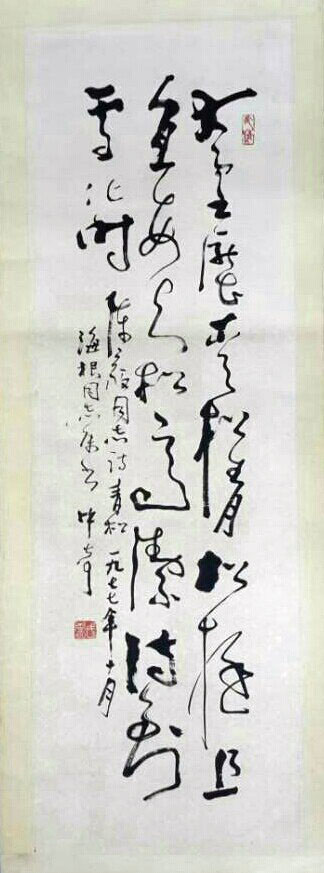 大雪压青松青松挺且
直要知松高洁待到
雪化时
陈毅同志诗青松 一九七七年十月
海根同志属书